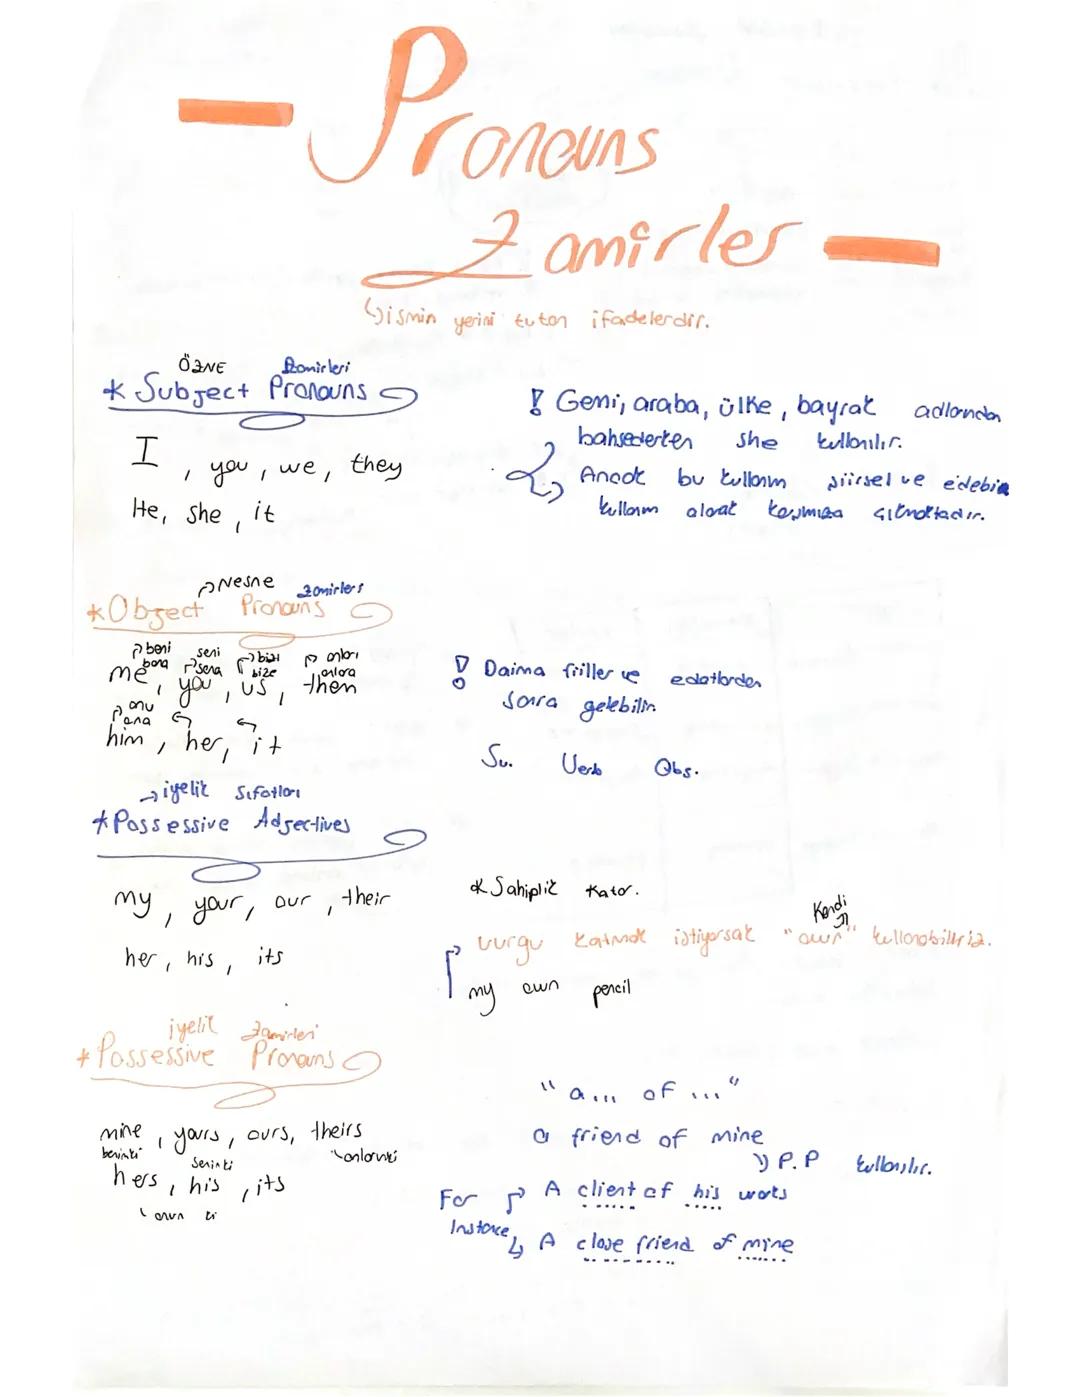 Pronouns
Zamirler
ismin yerini tutan ifadelerdir.
ÖZNE Zamirleri
* Subject Pronouns
I, you, we, they
He, she, it
! Gemi, araba, ülke, bayrak adlarından
bahsederken she kullanılır.
Ancak bu kullanım şiirsel ve edebi
kullanım olarak karşımıza çıkmaktadır.
Nesne zamirleri
* Object Pronouns
beni seni bizi onları
bana sana bize onlara
me, you, us, then
onu
ona
him, her, it
! Daima fiiller ve edatlardan
sonra gelebilir.
Su. Verb Obj.
iyelik Sıfatları
* Possessive Adjectives
my, your, our, their
her, his, its
* Sahiplik katar.
Kendi
vurgu katmak istiyorsak "own" kullanabiliriz.
my own pencil
iyelik zamirleri
* Possessive Pronouns
mine, yours, ours, theirs
benimki seninki onlarınki
hers, his, its
onun ki
"a... of ..."
a friend of mine
P.P kullanılır.
For Instance
A client of his works
A close friend of mine